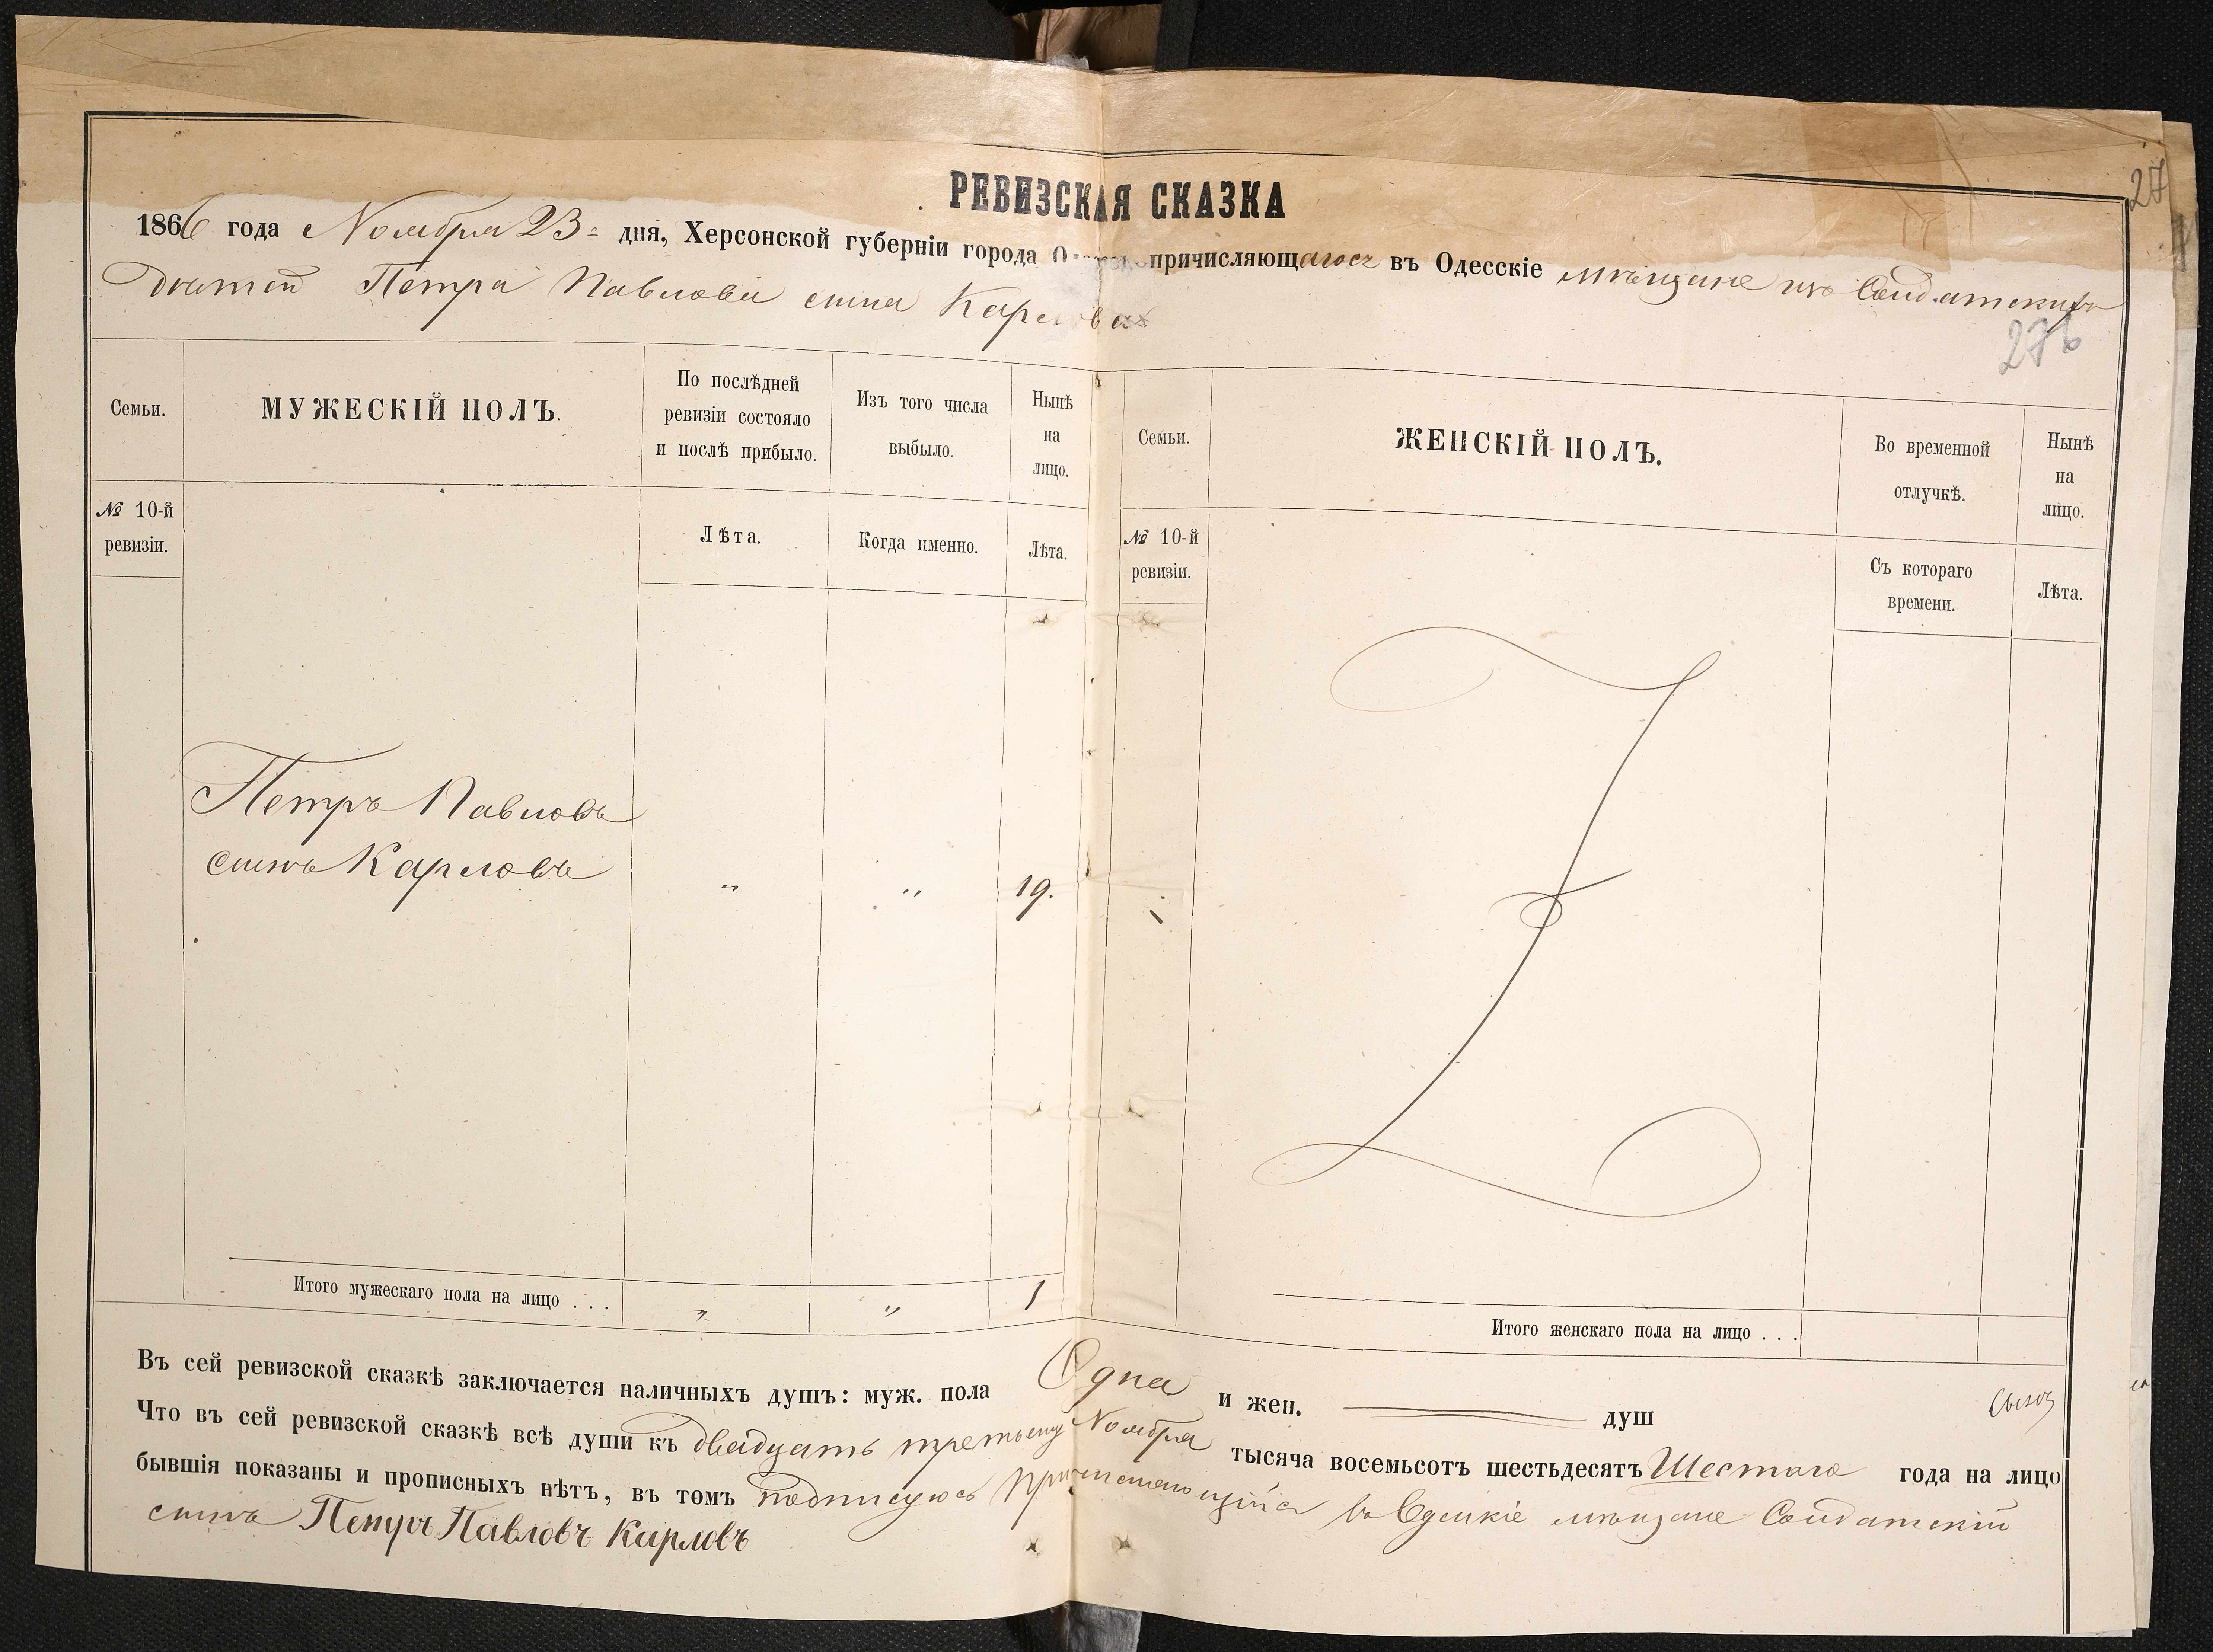 27
РЕВИЗСКАЯ СКАЗКА
1866 года Ноября 23 дня, Херсонской губерніи города причисляющагося въ Одесскіе мѣщане изъ Солдатскихъ
дѣтей Петра Павлова сына Карлова
276
Семьи.
МУЖЕСКІЙ ПОЛЪ.
По послѣдней
ревизіи состояло
и послѣ прибыло.
Изъ того числа
выбыло.
Нынѣ
на
лицо.
Семьи.
ЖЕНСКІЙ ПОЛЪ.
Во временной
отлучкѣ.
Нынѣ
на
лицо.
№ 10-й
ревизіи.
Лѣта.
Когда именно.
Лѣта.
№ 10-й
ревизіи.
Съ котораго
времени.
Лѣта.
Петръ Павловъ
сынъ Карловъ
" " 19.
Итого мужескаго пола на лицо . . . " " 1
Итого женскаго пола на лицо . . .
Въ сей ревизской сказкѣ заключается наличныхъ душъ: муж. пола Одна и жен. душ
Что въ сей ревизской сказкѣ всѣ души къ двадцать третьему Ноября тысяча восемьсотъ шестьдесятъ Шестаго года на лицо
бывшія показаны и прописныхъ нѣтъ, въ томъ подписуюсь Причисляющійся въ Одескіе мѣщане Солдатскій
сынъ Петръ Павловъ Карловъ